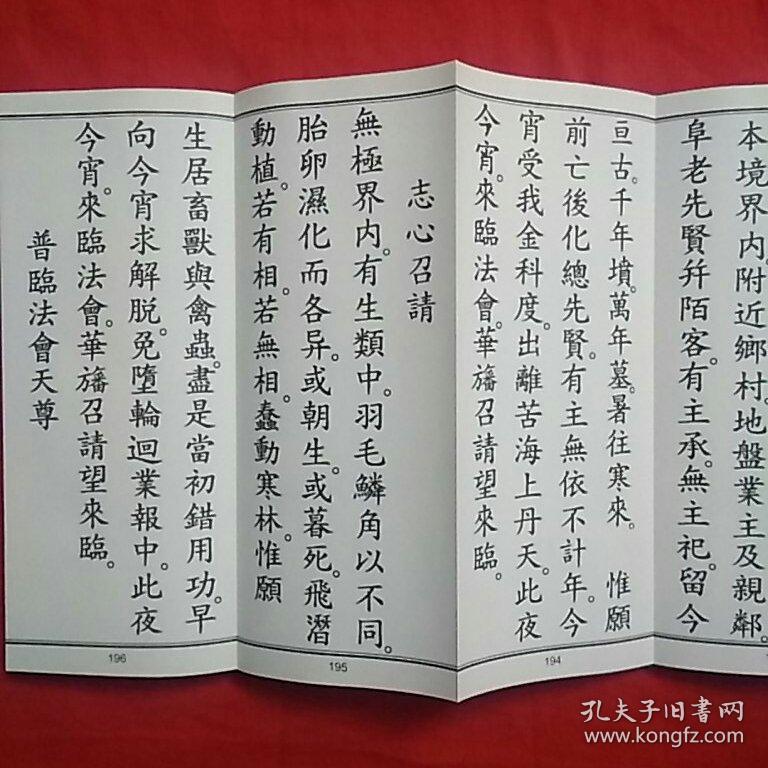 本境界内。附近鄉村。地盤業主及親鄰。
阜老先賢并陌客。有主承。無主祀。留今
亘古。千年墳。萬年墓。暑往寒來。 惟願
前亡後化總先賢。有主無依不計年。今
宵受我金科度。出離苦海上丹天。此夜
今宵。來臨法會。華旛召請望來臨。
志心召請
無極界内。有生類中。羽毛鱗角以不同。
胎卵濕化而各异。或朝生。或暮死。飛潛
動植。若有相。若無相。蠢動寒林。惟願
生居畜獸與禽蟲。盡是當初錯用功。早
向今宵求解脱。免墮輪迴業報中。此夜
今宵。來臨法會。華旛召請望來臨。
普臨法會天尊
194
195
196
孔夫子旧书网
www.kongfz.com